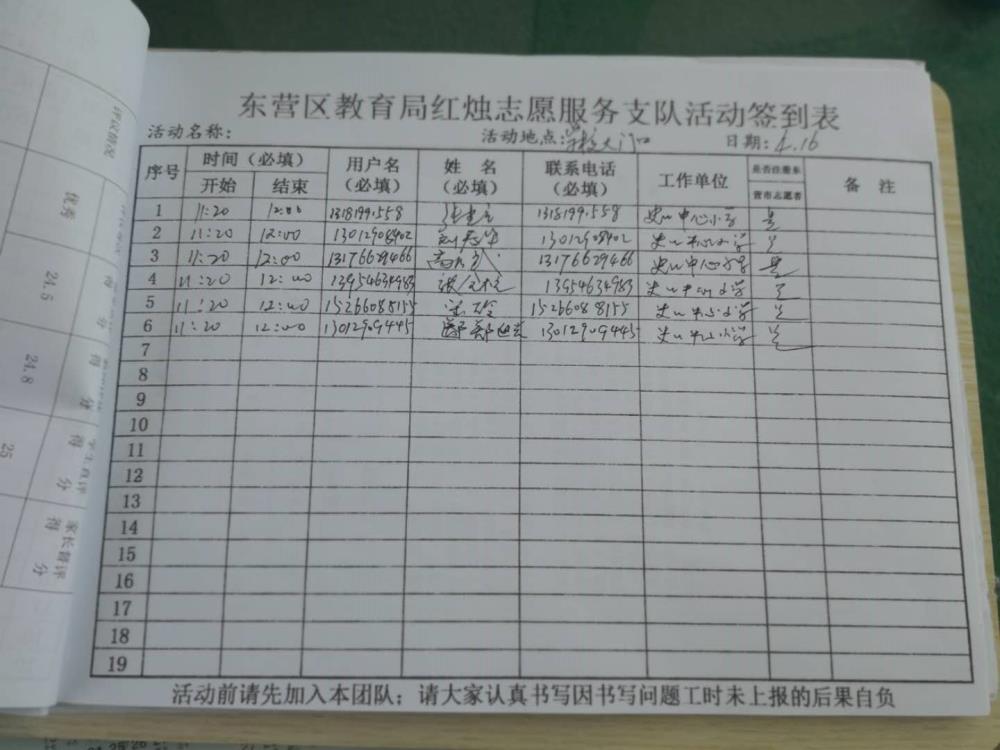 东营区教育局红烛志愿服务支队活动签到表
活动名称： 活动地点：学校大门口 日期：4.16
序号 时间（必填） 用户名（必填） 姓 名（必填） 联系电话（必填） 工作单位 是否注册东营市志愿者 备 注
开始 结束
1 11:20 12:00 1318199.558 1318199.558 史口中心小学 是
2 11:20 12:00 13012908402 13012908402 史口中心小学 是
3 11:20 12:00 13176629466 13176629466 史口中心小学 是
4 11:20 12:00 13954634983 13954634983 史口中心小学 是
5 11:20 12:00 15266088155 15266088155 史口中心小学 是
6 11:20 12:00 13012909445 13012909445 史口中心小学 是
7
8
9
10
11
12
13
14
15
16
17
18
19
活动前请先加入本团队；请大家认真书写因书写问题工时未上报的后果自负
优秀
24.5
24.8
25
得 分
家长督评
得 分